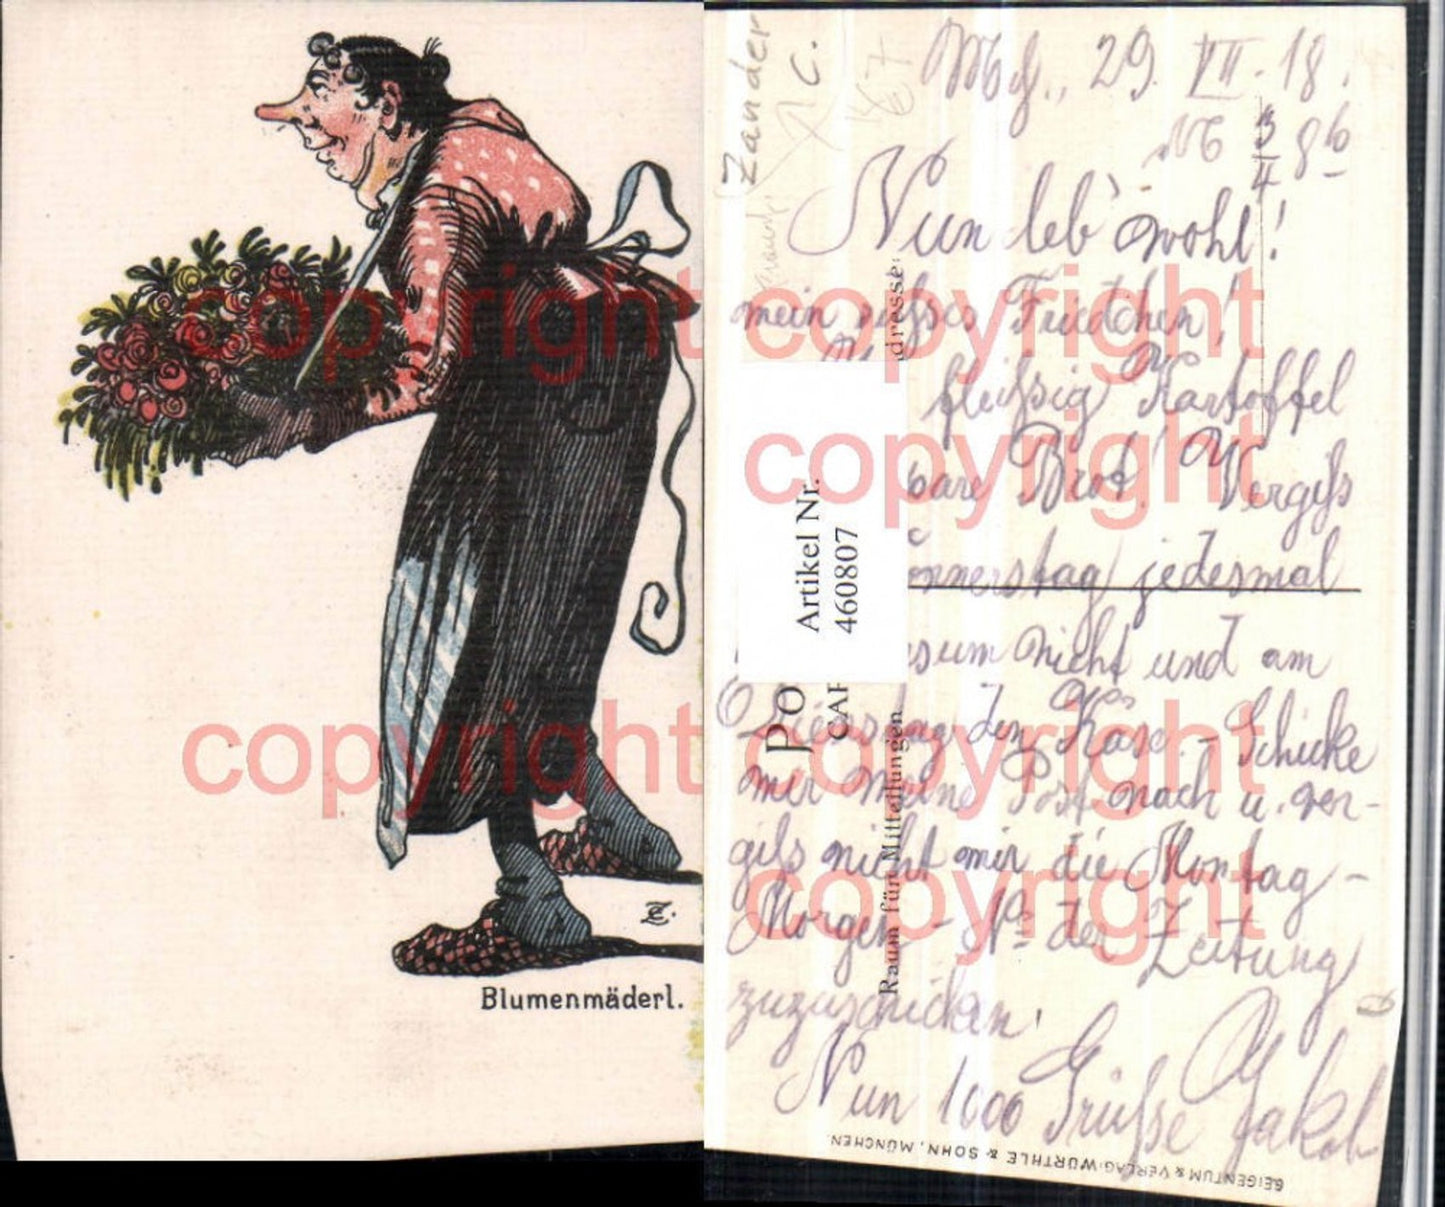 Blumenmäderl.
Zander
C.
67
29. VII. 18.
Nun leb' wohl!
mein süßes Friedchen!
fleißig Kartoffel
bare Brot! Vergiß
onnerstag jedesmal
nicht und am
Dienstag den Käse. - Schicke
mir meine Post nach u. ver-
giß nicht mir die Montag-
Morgen- No der Zeitung
zuzuschicken!
Nun 1000 Grüße Jakob
Artikel Nr.
460807
Po
CAR
dresse:
Raum für Mitteilungen
EIGENTUM & VERLAG: WÜRTHLE & SOHN, MÜNCHEN.
copyright copyright
copyright
copyright copyright
copyright